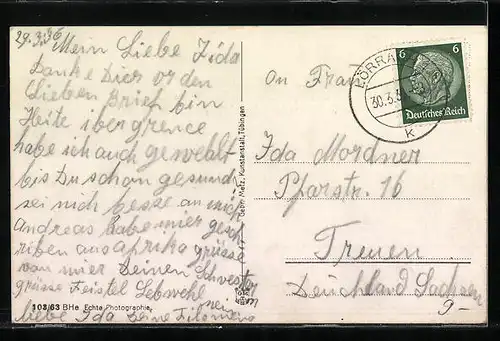 29.3.36
Mein Liebe Ida
Danke Dier vor den
Lieben Brief bin
Heite ibergrence
habe ich auch gewehlt
bis Du schon gesund
sei nich besse an mich
Andreas habe mier gesch
riben aus Afrika grüsse
von mier Deinen Schwester
grüsse Feistel Lebwohl
liebe Ida Deine Filomena
103/63 BHe Echte Photographie
Gebr. Metz, Kunstanstalt, Tübingen
LÖRRA
30.3.3
k
6 6
Deutsches Reich
An Frau
Ida Mordner
Pfarstr. 16
Treuen
Deuchland Sachsen
9-